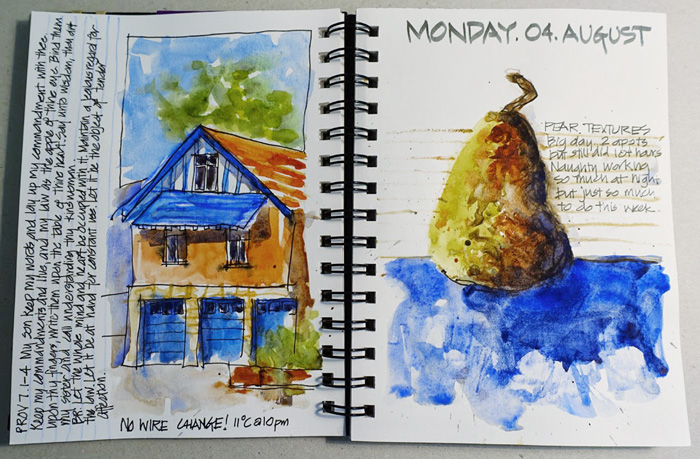 PROV 7.1-4 My son keep my words and lay up my commandment with thee.
Keep my commandments and live, and my law as the apple of thine eye. Bind them
upon thy fingers, write them upon the table of thine heart. Say unto wisdom, thou art
my sister and call understanding thy kinswoman.
Let the whole mind and heart be occupied with it. Maintain a jealous regard for
the law. Let it be at hand for constant use. Let it be the object of tender
affection.
NO WIRE CHANGE! 11°C @ 10pm
MONDAY. 04. AUGUST
PEAR TEXTURES
Big day. 2 apats
but still did 1st hours
Naughty working
so much at night
but just so much
to do this week.